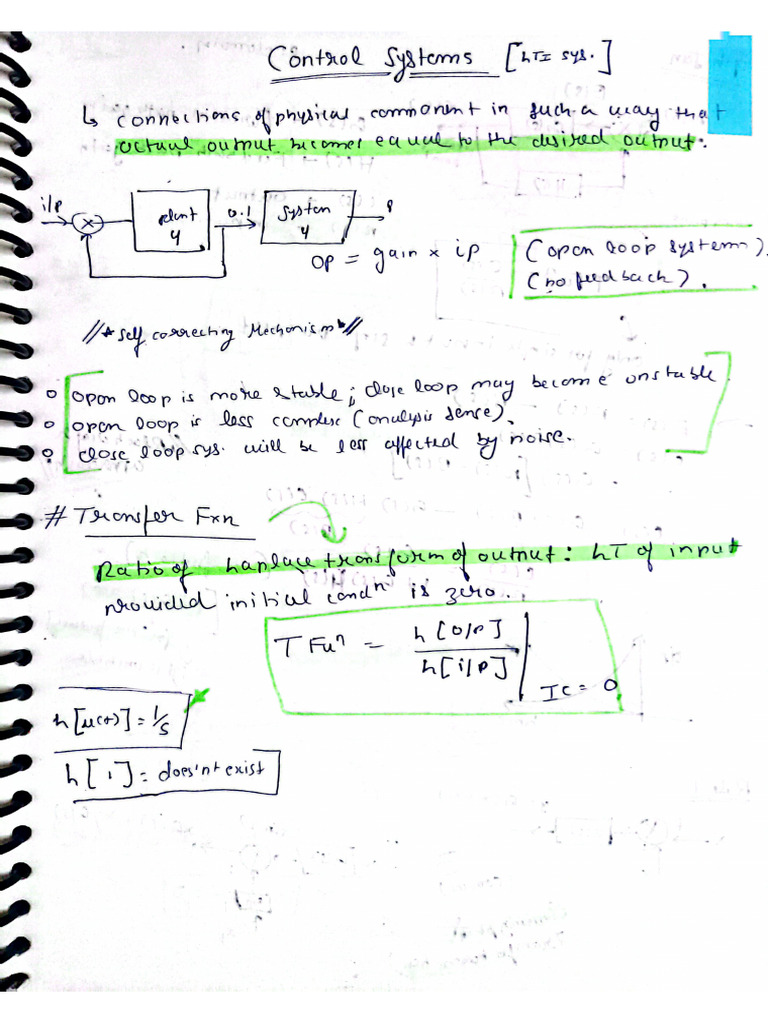 Control Systems [LTI sys.]
↳ connections of physical component in such a way that
actual output becomes equal to the desired output.
i/p
plant
0.1
system
4
4
OP = gain × ip
(open loop system).
(no feedback).
// * Self correcting Mechanism * //
o open loop is more stable; close loop may become unstable
o open loop is less complex (analysis sense).
o close loop sys. will be less affected by noise.
# Transfer Fxn
Ratio of Laplace transform of output : LT of input
provided initial condn is zero.
T Fun = L[O/P] / L[i/P] | IC = 0
L[u(t)] = 1/s
L[1] = does'nt exist